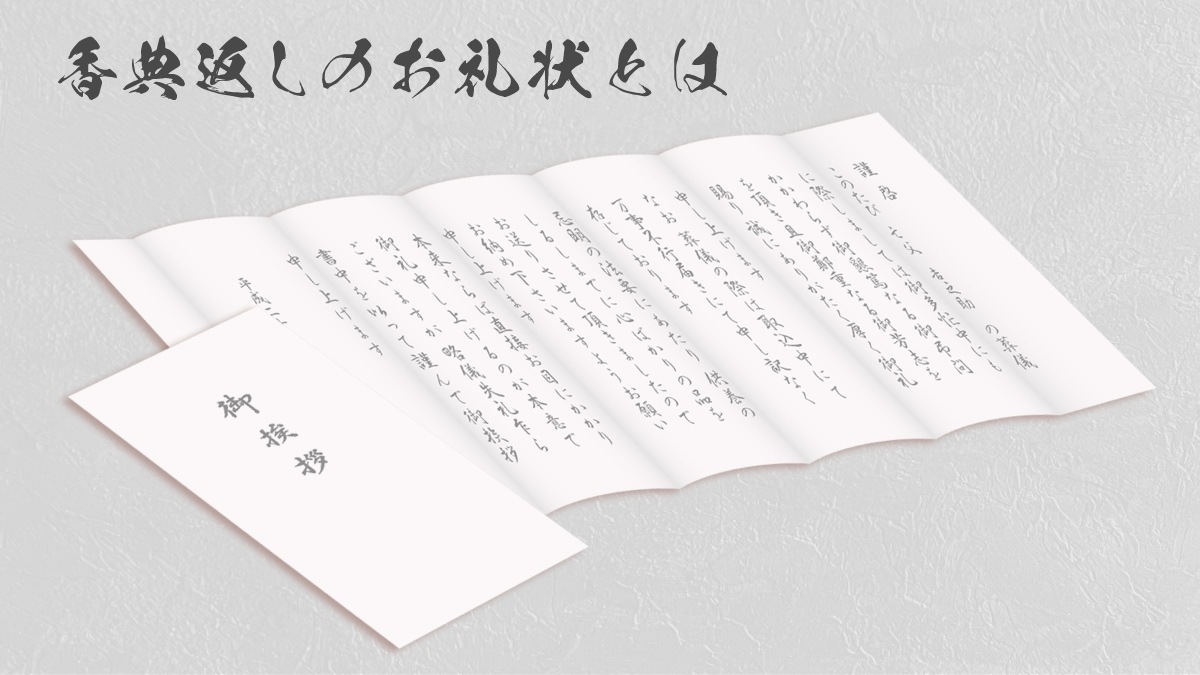 香典返しのお礼状とは
謹啓
このたび 亡父 吉之助 の葬儀
に際しましては御多忙中にも
かかわらず御懇篤なる御弔問
を頂き且御鄭重なる御芳志を
賜り 誠にありがたく厚く御礼
申し上げます
なお 葬儀の際は取込中にて
万事不行届きにて申し訳なく
存じております
忌明の法要にあたり 供養の
しるしまでに心ばかりの品を
お送りさせて頂きましたので
お納め下さいますようお願い
申し上げます
本来ならば直接お目にかかり
御礼申し上げるのが本意で
ございますが 略儀失礼乍ら
書中を以って 謹んで御挨拶
申し上げます
平成二
御挨拶